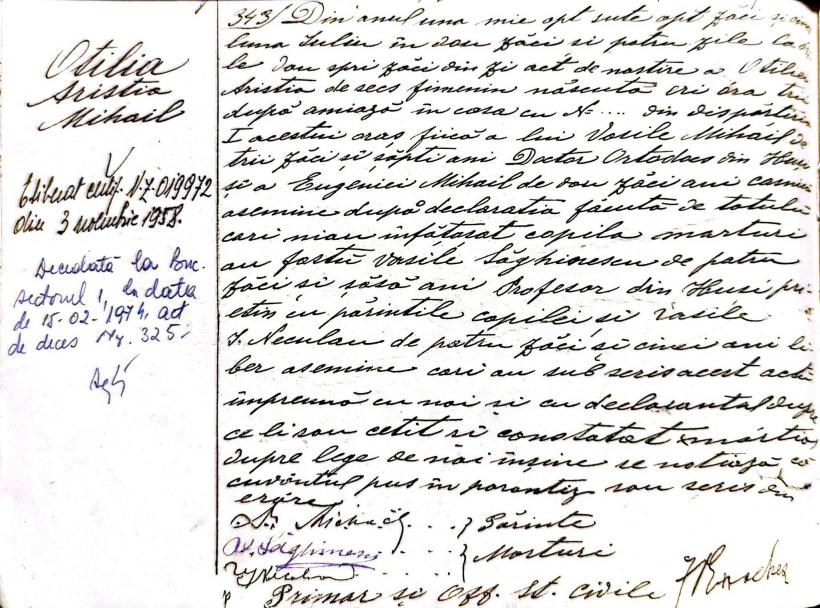 Otilia
Aristia
Mihail
Eliberat certif. N.Z. 019972
din 3 noiembrie 1958.
Decedată la Buc.
sectorul 1, la data
de 15-02-1974 act
de deces Nr. 325
343/ Din anul una mie opt sute opt zăci și cinci
luna Iuliu în dou zăci si patru zile la
le dou spri zăci din zi act de nastire a Otiliei
Aristia de secs fimenin născută eri ora trii
după amiază în casa cu No .... din dispărtirea
I acestui oraș fiică a lui Vasile Mihail de
trii zăci si săpti ani Doctor Ortodocs din Husi
și a Eugeniei Mihail de dou zăci ani
asemine după declaratia făcută de tatălu
cari niau înfățasat copila marturi
au fostu Vasile Săghinescu de patru
zăci si șăsă ani Profesor din Husi pri-
etin cu părintile copilei și Vasile
I. Neculau de patru zăci si cinci ani li
ber asemine cari au sub scris acest actu
împreună cu noi si cu declarantul dupre
ce li sau cetit si constatat
dupre lege de noi însine se notiază că
cuvântul pus în parantiz sau scris din
eroare
Dr. Michail . . . } Părinte
V. Săghinescu . . . } Marturi
Primar și Off. St. Civile